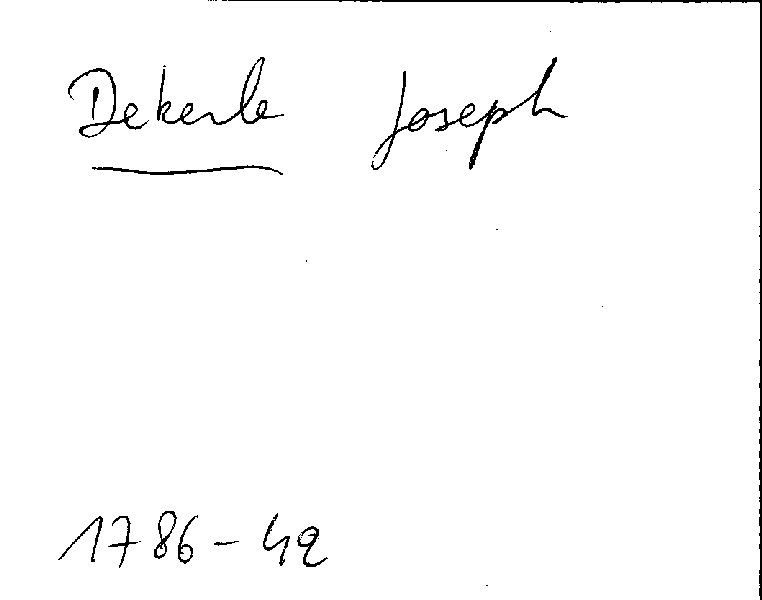 Dekerle Joseph
1786-42